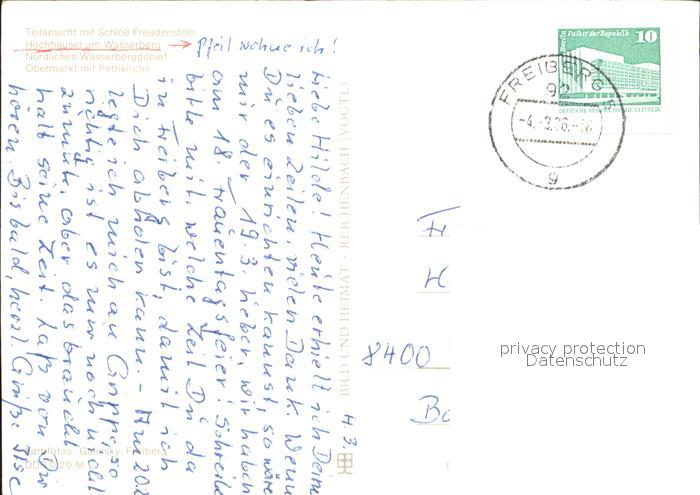 Teilansicht mit Schloß Freudenstein
Hochhäuser am Wasserberg → Pfeil wohne ich!
Nördliches Wasserberggebiet
Obermarkt mit Petrikirche
Liebe Hilde! Heute erhielt ich Deine
lieben Zeilen, vielen Dank. Wenn
Du es einrichten kannst, so wäre
mir der 19.3. lieber, wir haben
am 18. Frauentagsfeier! Schreibe
bitte mit, welche Zeit Du da
in Freiberg bist, damit ich
Dich abholen kann. - Am 20.2
legte ich mich an Grippe, so
richtig ist es mir noch nicht
zumute, aber das braucht
halt seine Zeit. Laß von Dir
hören Bis bald, herzl. Grüße Ilse
4.3.
Farbfotos: Galinsky, Freiberg
BILD UND HEIMAT · REICHENBACH (VOGTL)
Berlin Palast der Republik 10
DEUTSCHE DEMOKRATISCHE REPUBLIK
FREIBERG 5
92
-4.-3.86.-18
g
Fr
H
8400
Ba
privacy protection
Datenschutz